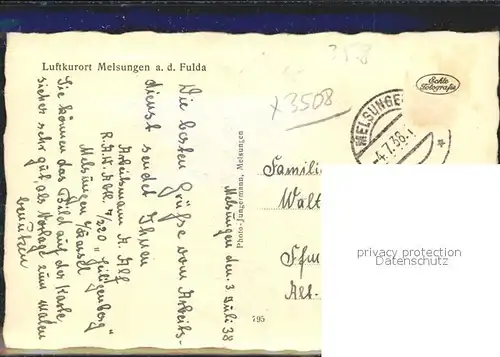 Luftkurort Melsungen a. d. Fulda
Die besten Grüsse vom Arbeits-
dienst sendet Ihnen
Arbeitsmann K. Alf
R.A.D. Abt. 7/220 „Heiligenberg"
Melsungen b/Kassel
Sie können das Bild auf der Karte
sicher sehr gut als Vorlage zum malen
benützen
Melsungen den. 3 Juli 38
Photo-Jungermann, Melsungen
795
x3508
Echte
Fotografie
MELSUNGEN
4.7.38
Famili
Walt
Ffm
Alt-
privacy protection
Datenschutz